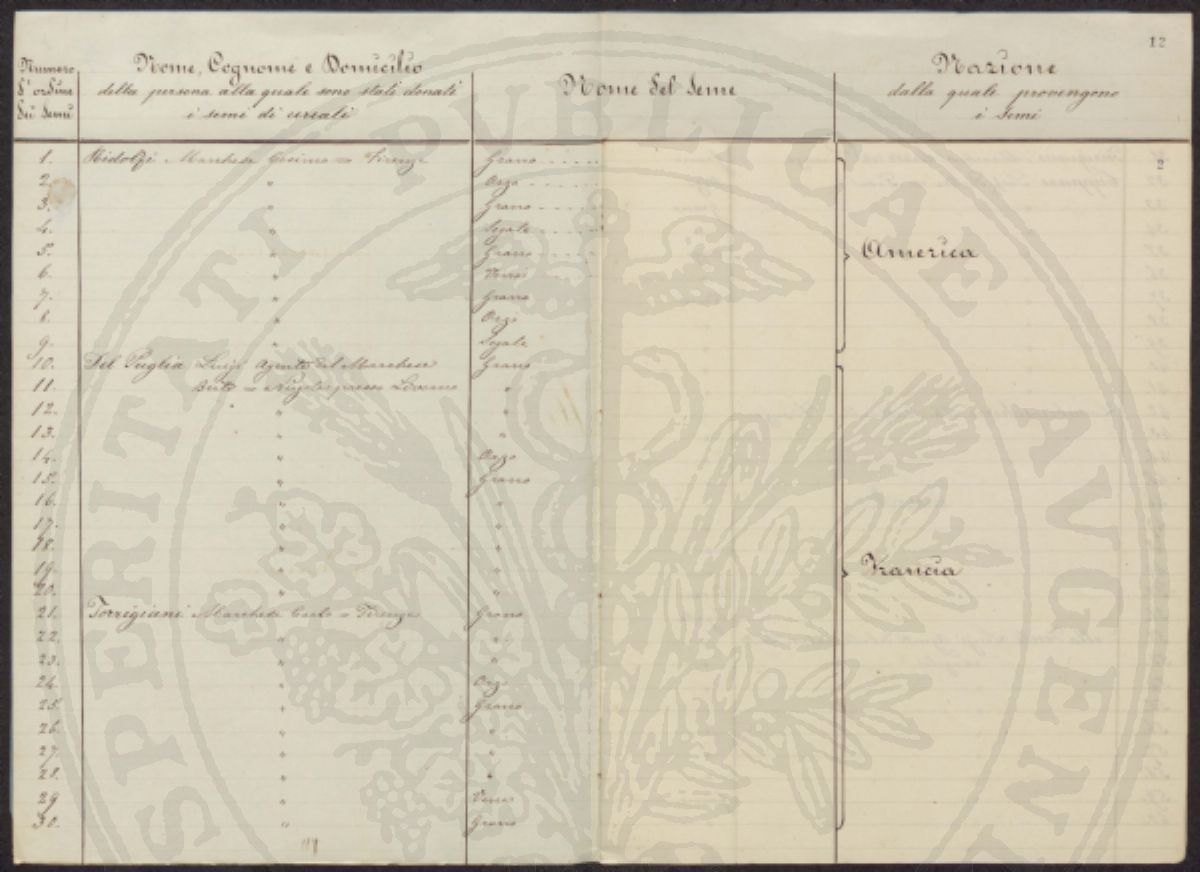 12
Numero d'ordine dei Semi
Nome, Cognome e Domicilio
della persona alla quale sono stati donati
i semi di cereali
Nome del Seme
Nazione
dalla quale provengono
i Semi
1. Ridolfi Marchese Cosimo = Firenze Grano
2
2. " Orzo
3. " Grano
4. " Segale
5. " Grano
America
6. "
7. " Grano
8. " Orzo
9. " Segale
10. Del Puglia Luigi Agente del Marchese Grano
11. = presso "
12. " "
13. " "
14. " Orzo
15. " Grano
16. " "
17. " "
18. " "
19. " "
Francia
20. " "
21. Torrigiani Marchese Carlo = Firenze Grano
22. " "
23. " "
24. " Orzo
25. " Grano
26. " "
27. " "
28. " "
29 "
30. " Grano
PROSPERITATI PUBLICAE AUGENDAE